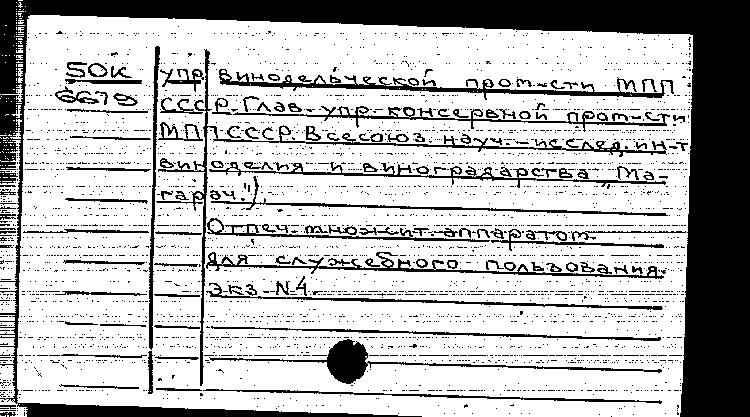 50К упр. винодельческой пром-сти МПП
6679 СССР. Глав. упр. консервной пром-сти
МПП СССР. Всесоюз. науч.-исслед. ин-т
виноделия и виноградарства „Ма-
гарач.")
Отпеч. множит. аппаратом
для служебного пользования.
экз. N4.